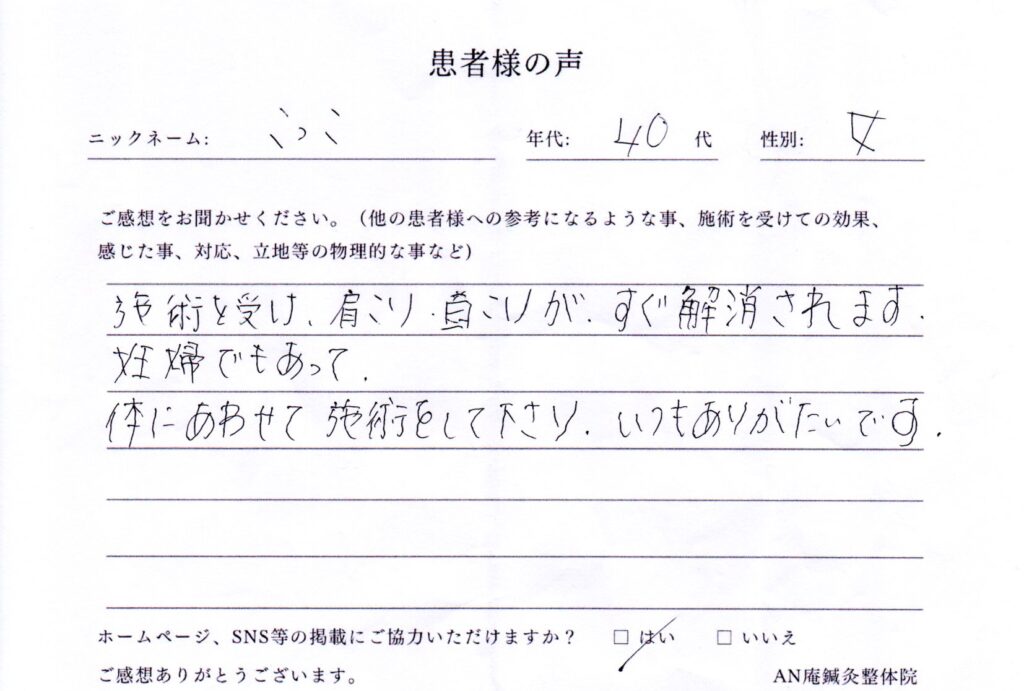 患者様の声
ニックネーム: ふつこ 年代: 40 代 性別: 女
ご感想をお聞かせください。（他の患者様への参考になるような事、施術を受けての効果、
感じた事、対応、立地等の物理的な事など)
施術を受け、肩こり・首こりが、すぐ解消されます.
妊婦でもあって、
体にあわせて施術をして下さり、いつもありがたいです.
ホームページ、SNS等の掲載にご協力いただけますか？ □ はい □ いいえ
ご感想ありがとうございます。 AN庵鍼灸整体院